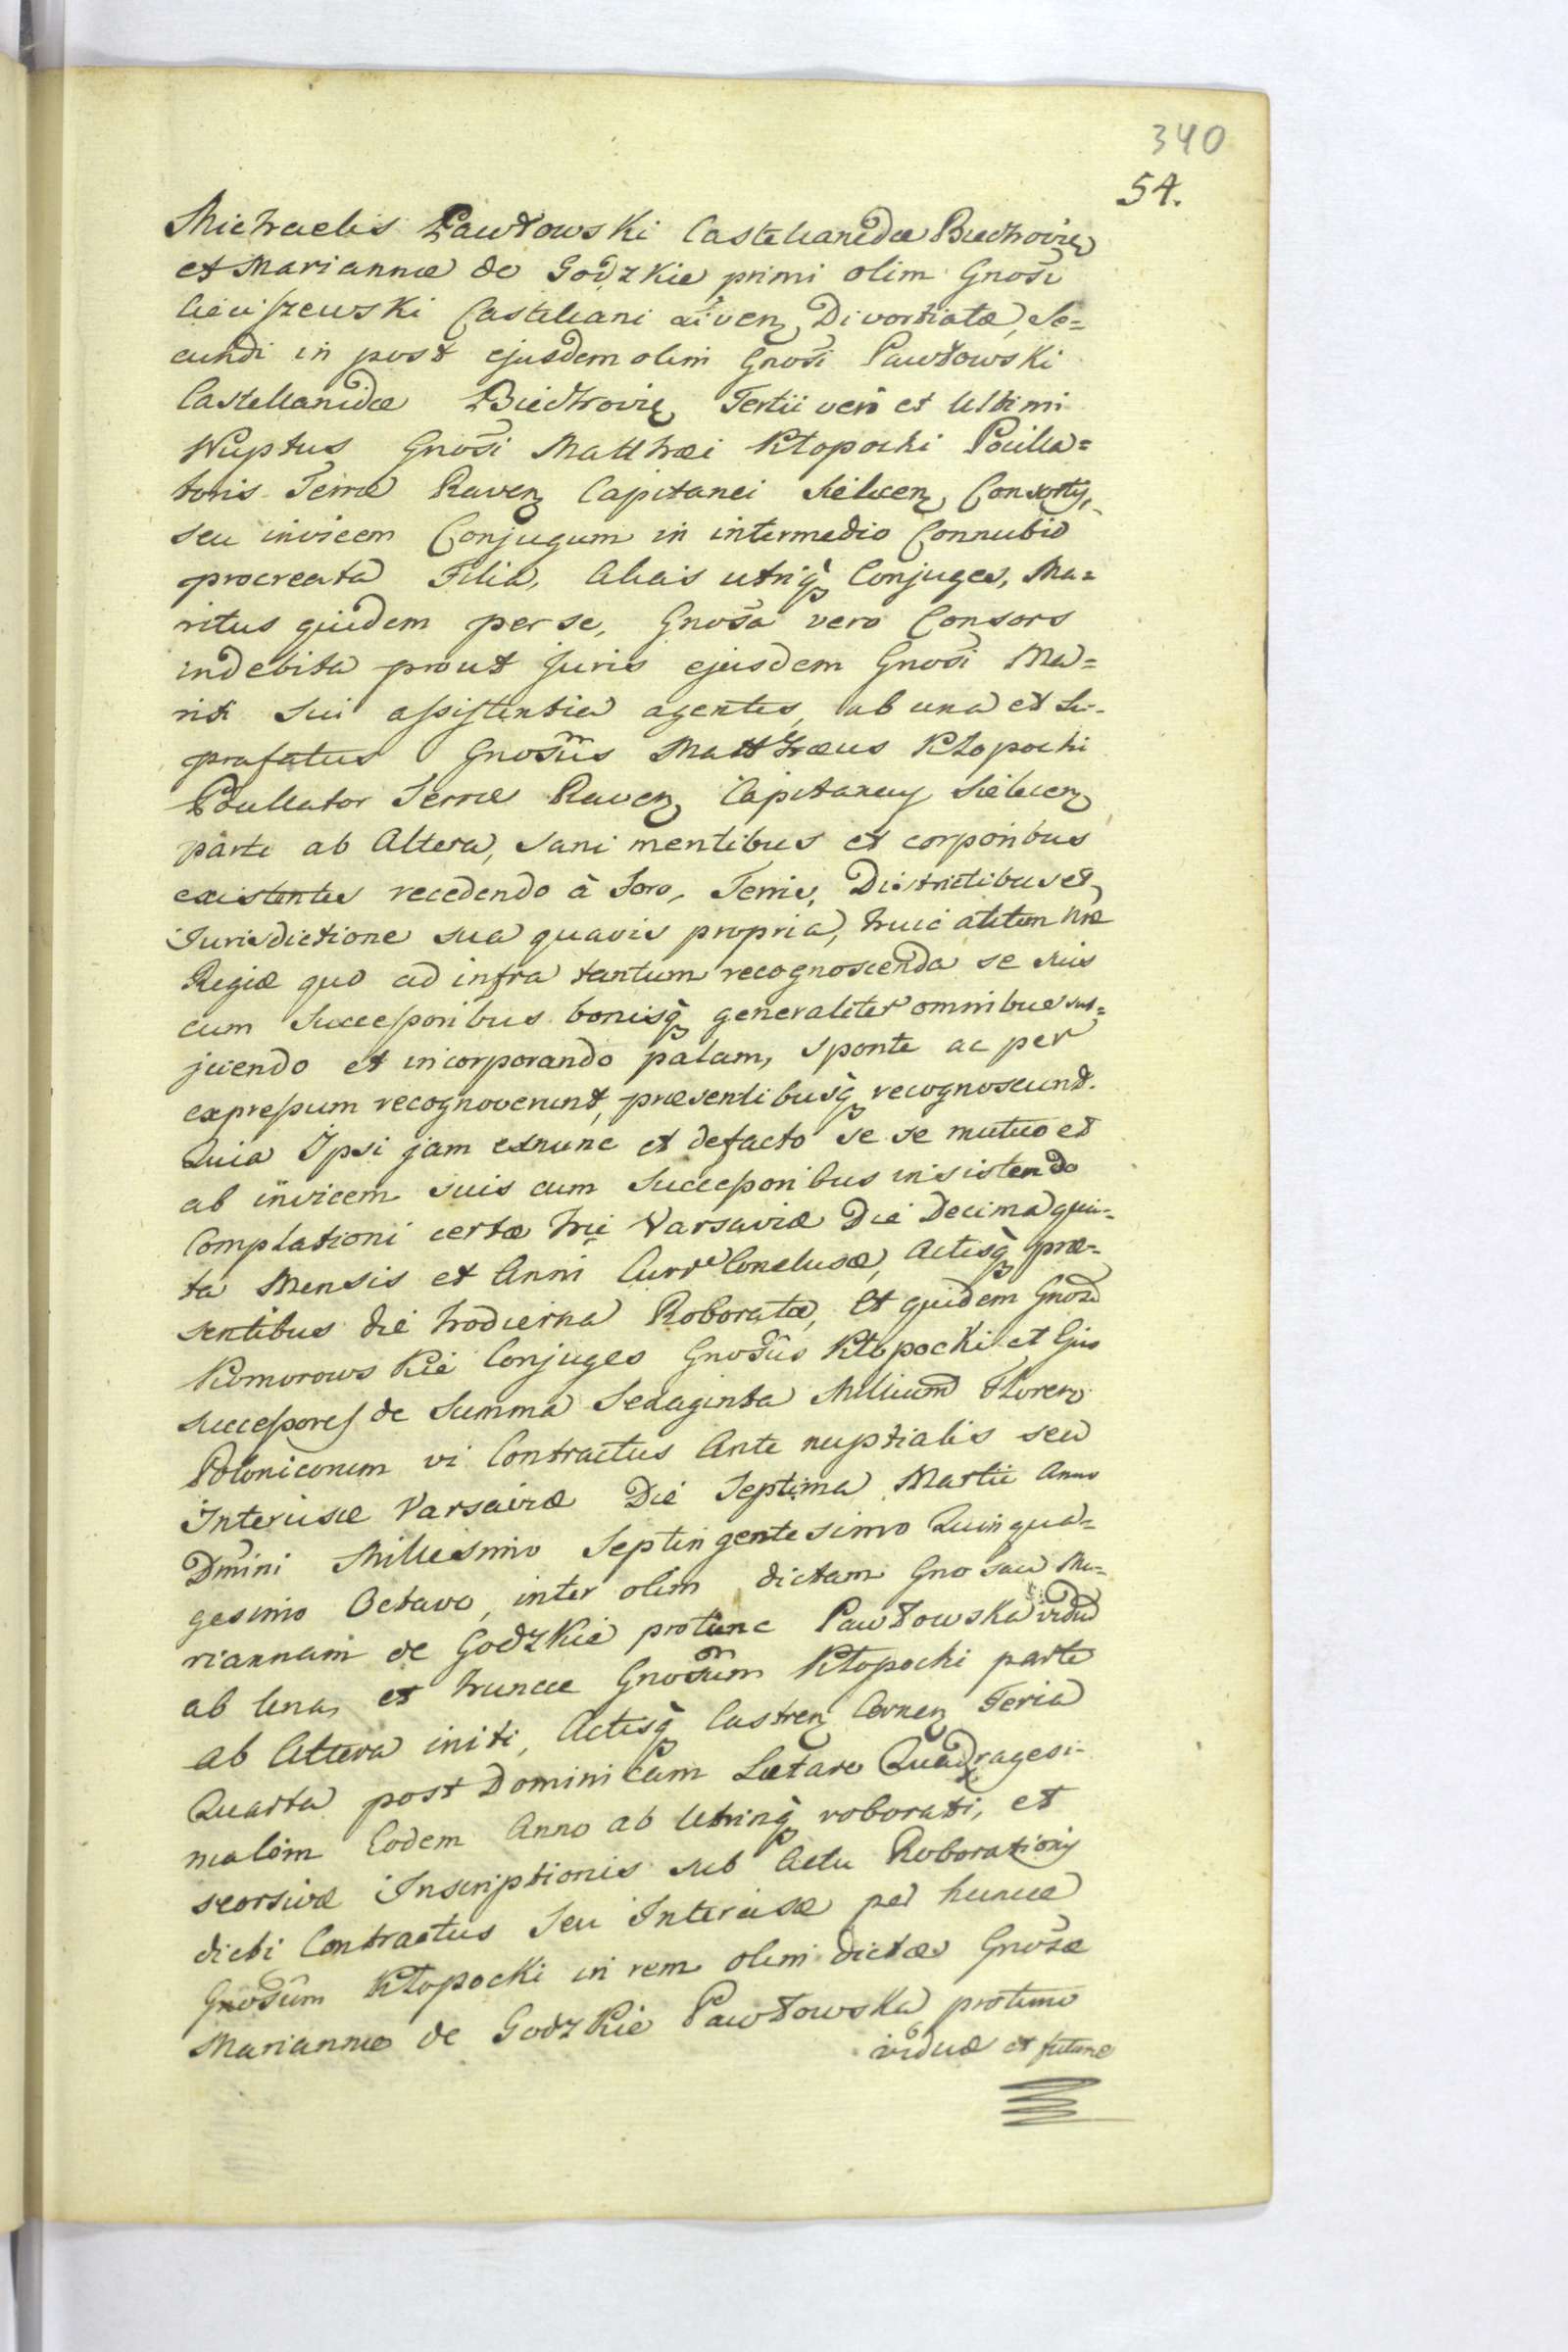 340
54.
Michaelis Pawłowski Castellanidæ Biechovię
et Mariannæ de Godzkie primi olim Gnosi
Cieciszewski Castellani Livenꝫ Divortiatæ, Se=
cundi in post ejusdem olim Gnosi Pawłowski
Castellanidæ Biechovię Tertii verò et Ultimi
Nuptus Gnosi Matthæi Kłopocki Pocilla=
toris Terræ Ravenꝫ Capitanei Sielcenꝫ Consortis,
seu invicem Conjugum in intermedio Connubio
procreata Filia, Alias utriqꝫ Conjuges, Ma=
ritus quidem per se, Gnosa vero Consors
indebita prout juris ejusdem Gnosi Ma=
riti sui assistentia agentes, ab una et Su-
prafatus Gnosus Matthæus Kłopocki
Pocillator Terræ Ravenꝫ Capitaney Sielcenꝫ
parte ab Altera, sani mentibus et corporibus
existentes recedendo à Foro, Terris, Districtibus et
Jurisdictione sua quavis propria, huic autem
Regiæ quo ad infra tantum recognoscenda se suis
cum Successoribus bonisqꝫ generaliter omnibus sub=
jiciendo et incorporando palam, sponte ac per
expressum recognoverunt, præsentibusqꝫ recognoscunt.
Quia Ipsi jam exnunc et defacto se se mutuo et
ab invicem suis cum Successoribus insistendo
Complationi certæ hic Varsaviæ Die Decima quin-
ta Mensis et Anni Curre Conclusæ, Actisqꝫ præ-
sentibus die hodierna Roboratæ, Et quidem Gnosi
Komorowskie Conjuges Gnosus Kłopocki et Ejus
successores de Summa Sexaginta Millium Floreno
Polonicorum vi Contractus Ante nuptialis seu
Intercisæ Varsaviæ Die Septima Martii Anno
Dmini Millesimo Septingentesimo Quinqua=
gesimo Octavo, inter olim dictam Gnosam Ma=
riannam de Godzkie protunc Pawłowska viduã
ab Una, et hunce Gnosum Kłopocki parte
ab Altera initi, Actisqꝫ Castrenꝫ Cernenꝫ Feria
Quarta post Dominicam Lætare Quadragesi-
malem Eodem Anno ab Utrinqꝫ roborati, et
seorsivæ Inscriptionis sub Actu Roborationis
dicti Contractus Seu Intercisæ per hunce
Gnosum Kłopocki in rem olim dictæ Gnosæ
Mariannæ de Godzkie Pawłowska protunc
viduæ et futuræ